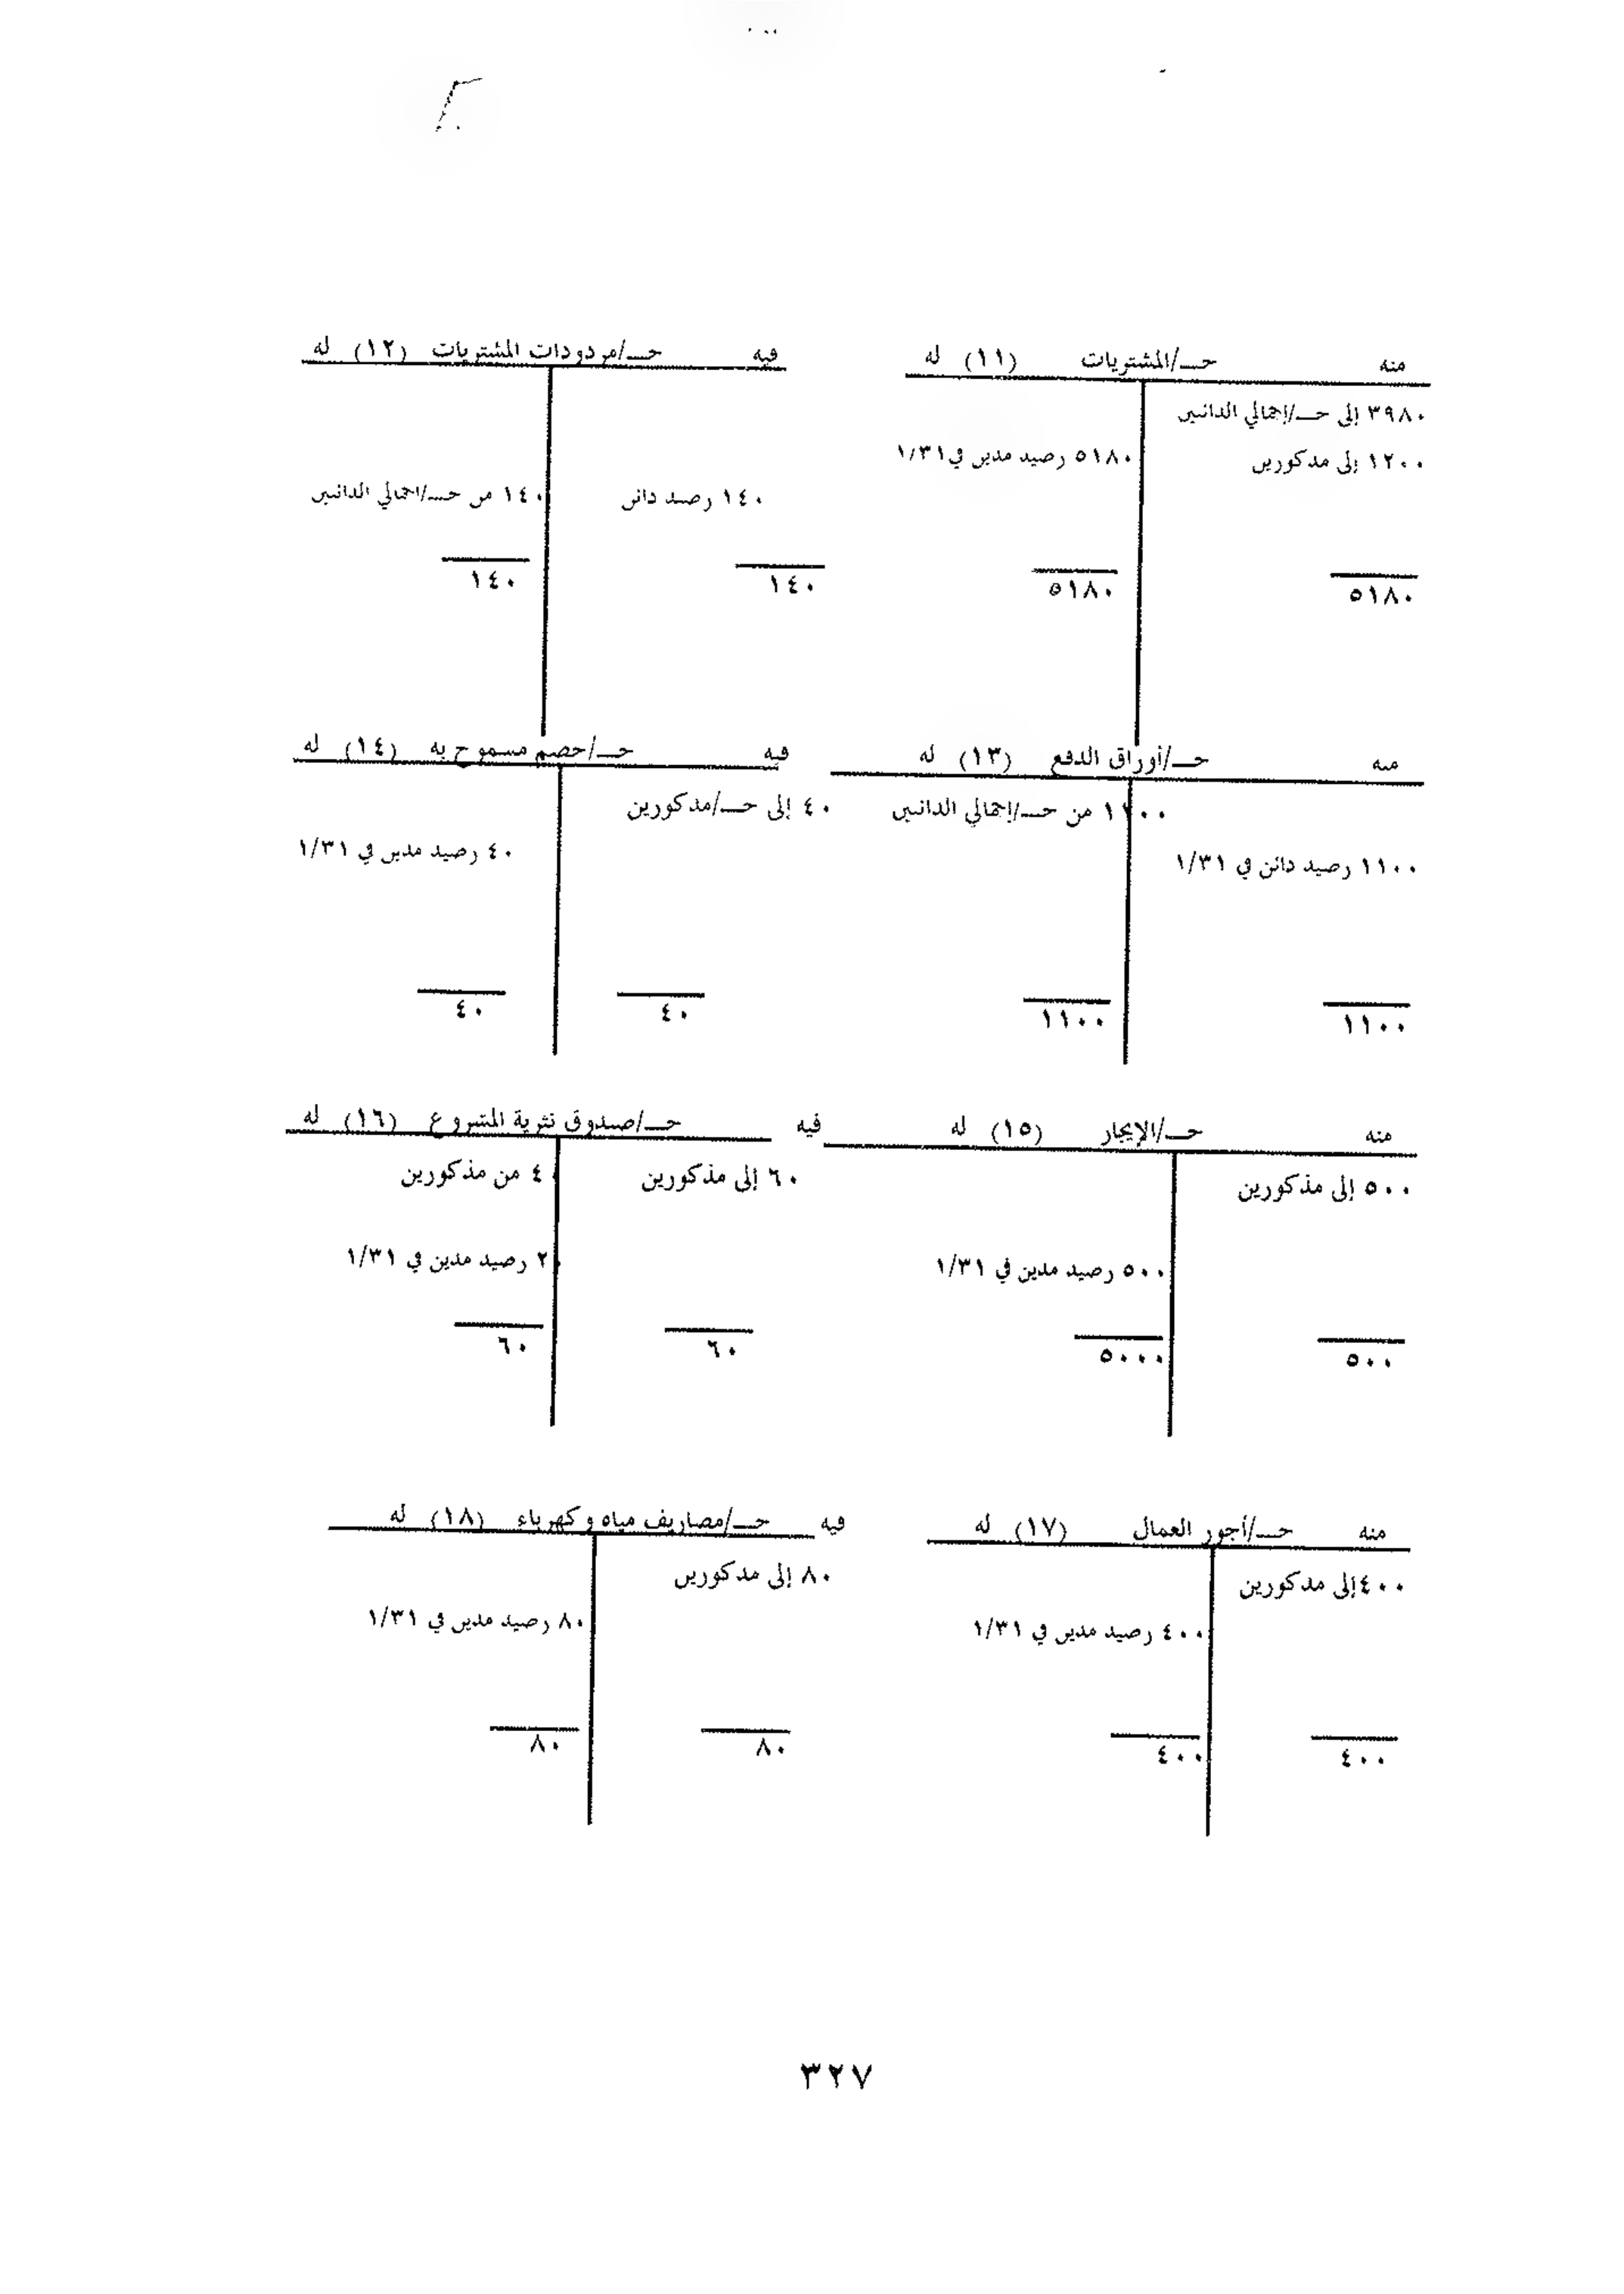 منه حـ/المشتريات (١١) له
٣٩٨٠ إلى حـ/إجمالي الدائنين
١٢٠٠ إلى مذكورين
٥١٨٠ رصيد مدين في ١/٣١
٥١٨٠
٥١٨٠
فيه حـ/مردودات المشتريات (١٢) له
١٤٠ رصد دائن
١٤٠ من حـ/اجمالي الدائنين
١٤٠
١٤٠
منه حـ/أوراق الدفع (١٣) له
١١٠٠ من حـ/إجمالي الدائنين
١١٠٠ رصيد دائن في ١/٣١
١١٠٠
١١٠٠
فيه حـ/خصم مسموح به (١٤) له
٤٠ إلى حـ/مذكورين
٤٠ رصيد مدين في ١/٣١
٤٠
٤٠
منه حـ/الإيجار (١٥) له
٥٠٠ إلى مذكورين
٥٠٠ رصيد مدين في ١/٣١
٥٠٠
٥٠٠٠
فيه حـ/صندوق نثرية المشروع (١٦) له
٦٠ إلى مذكورين
٤٠ من مذكورين
٢٠ رصيد مدين في ١/٣١
٦٠
٦٠
منه حـ/أجور العمال (١٧) له
٤٠٠ إلى مذكورين
٤٠٠ رصيد مدين في ١/٣١
٤٠٠
٤٠٠
فيه حـ/مصاريف مياه وكهرباء (١٨) له
٨٠ إلى مذكورين
٨٠ رصيد مدين في ١/٣١
٨٠
٨٠
٣٢٧